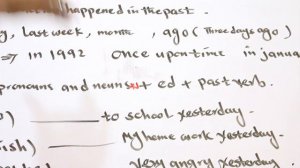 happened in the past.
, last week, month , ago ( Three days ago )
⇒ in 1992 Once upon time in janua
pronouns and nouns + ed + past verb.
) ______ to school yesterday.
ish) ______ My home work yesterday.
Very angry yesterday.